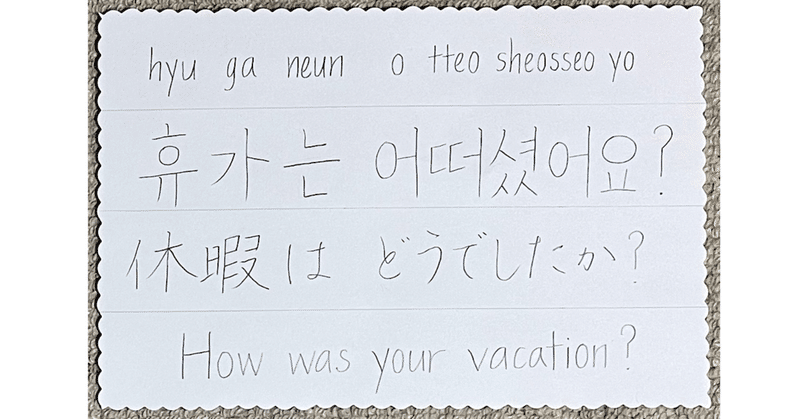 hyu ga neun o tteo sheosseo yo
휴가는 어떠셨어요?
休暇は どうでしたか?
How was your vacation?